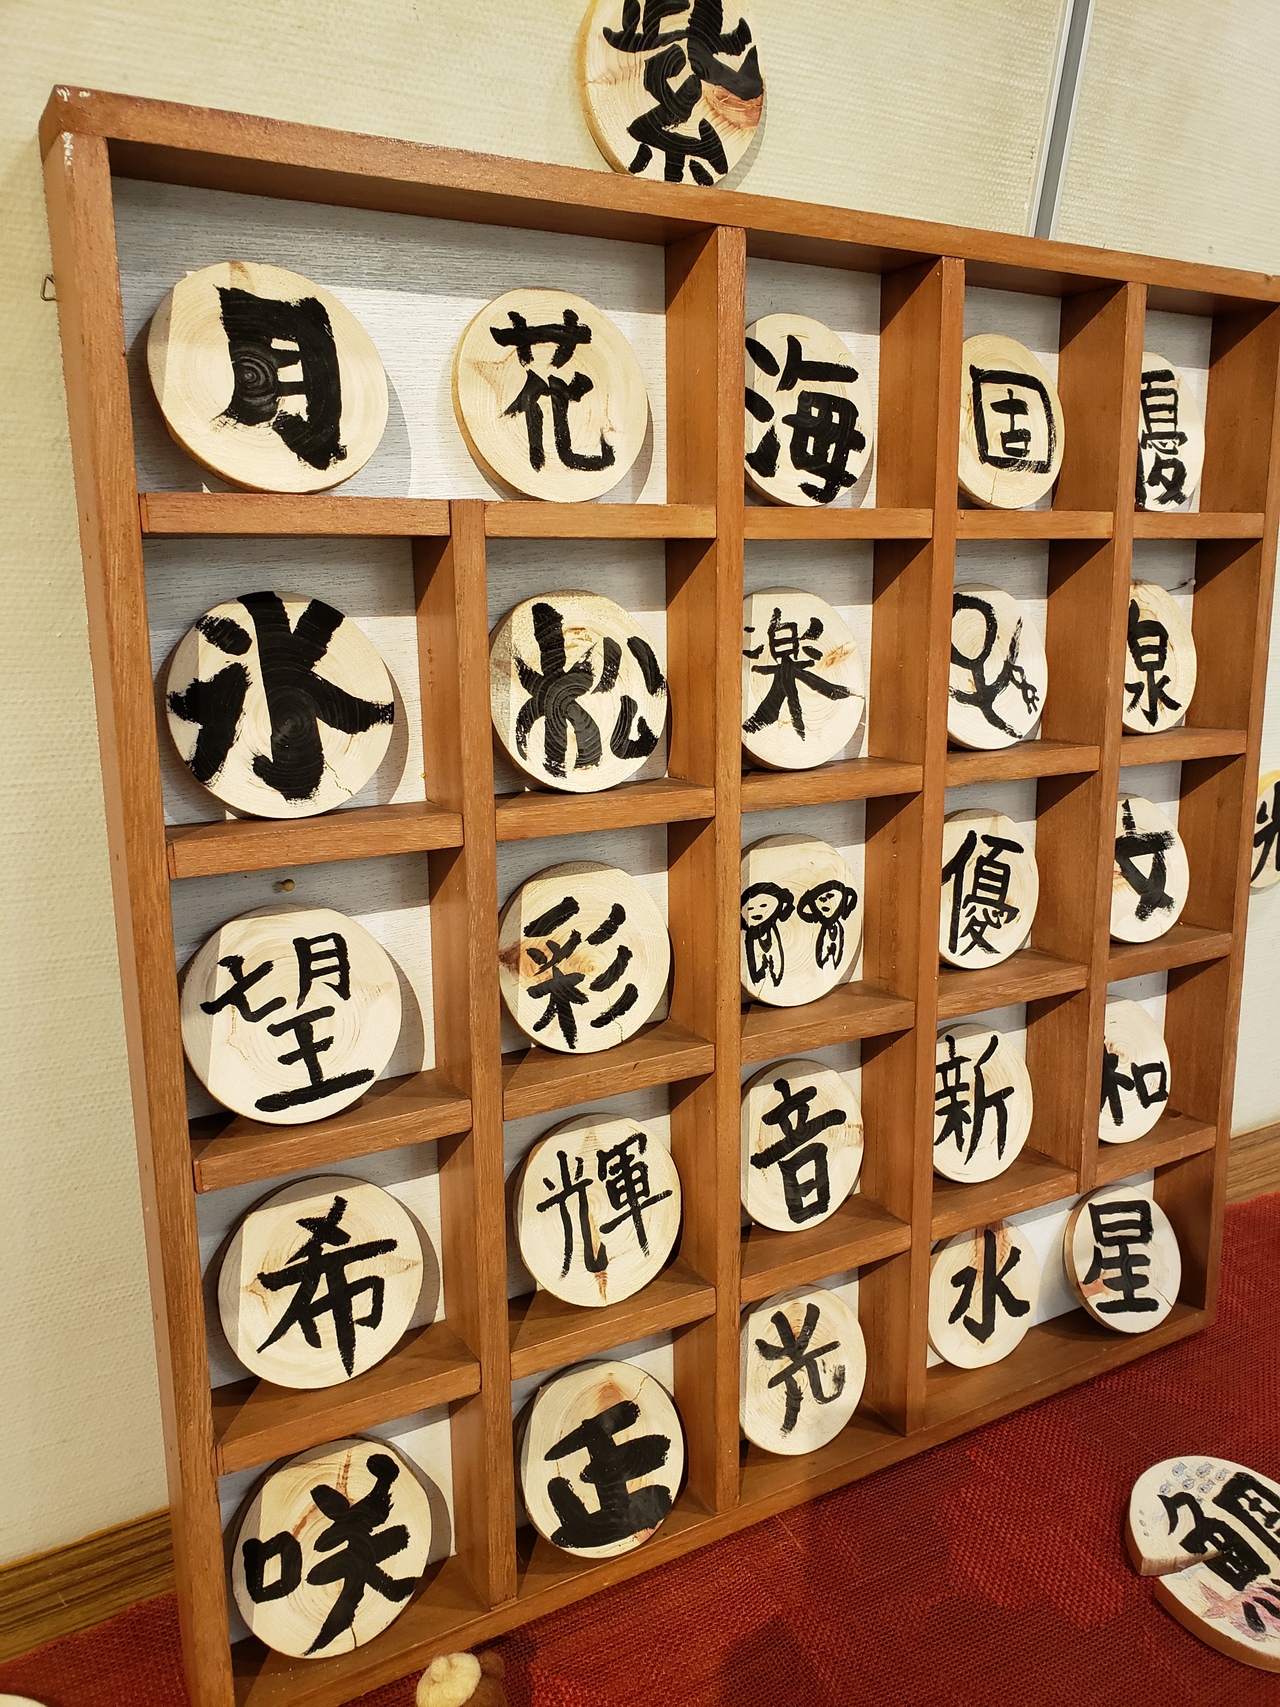 紫
月 花 海 固 優
氷 松 楽 泉
望 彩 優 女
希 輝 音 新 和
咲 正 光 水 星
光